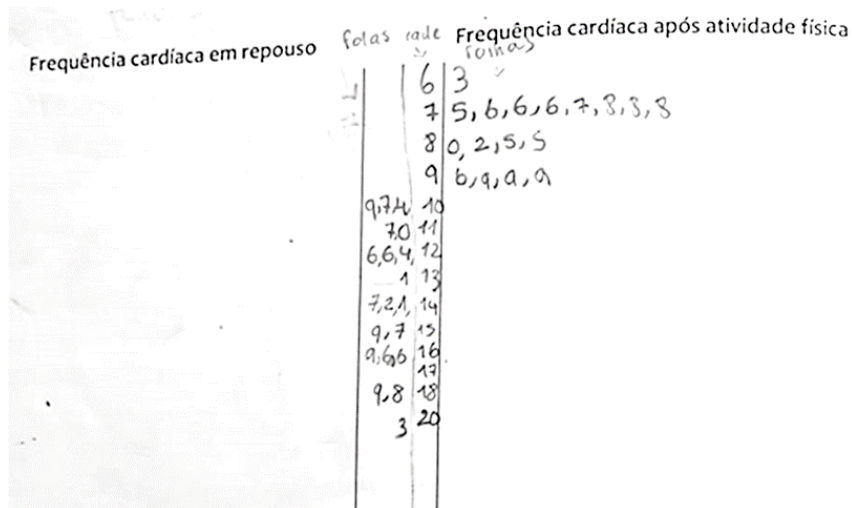 Frequência cardíaca em repouso folas caule Frequência cardíaca após atividade física
folhas
6 3
7 5, 6, 6, 6, 7, 8, 8, 8
8 0, 2, 5, 5
9 6, 9, 9, 9
9,7,4 10
7,0 11
6,6,4, 12
1 13
7,2,1, 14
9,7 15
9,6,6 16
17
9,8 18
3 20